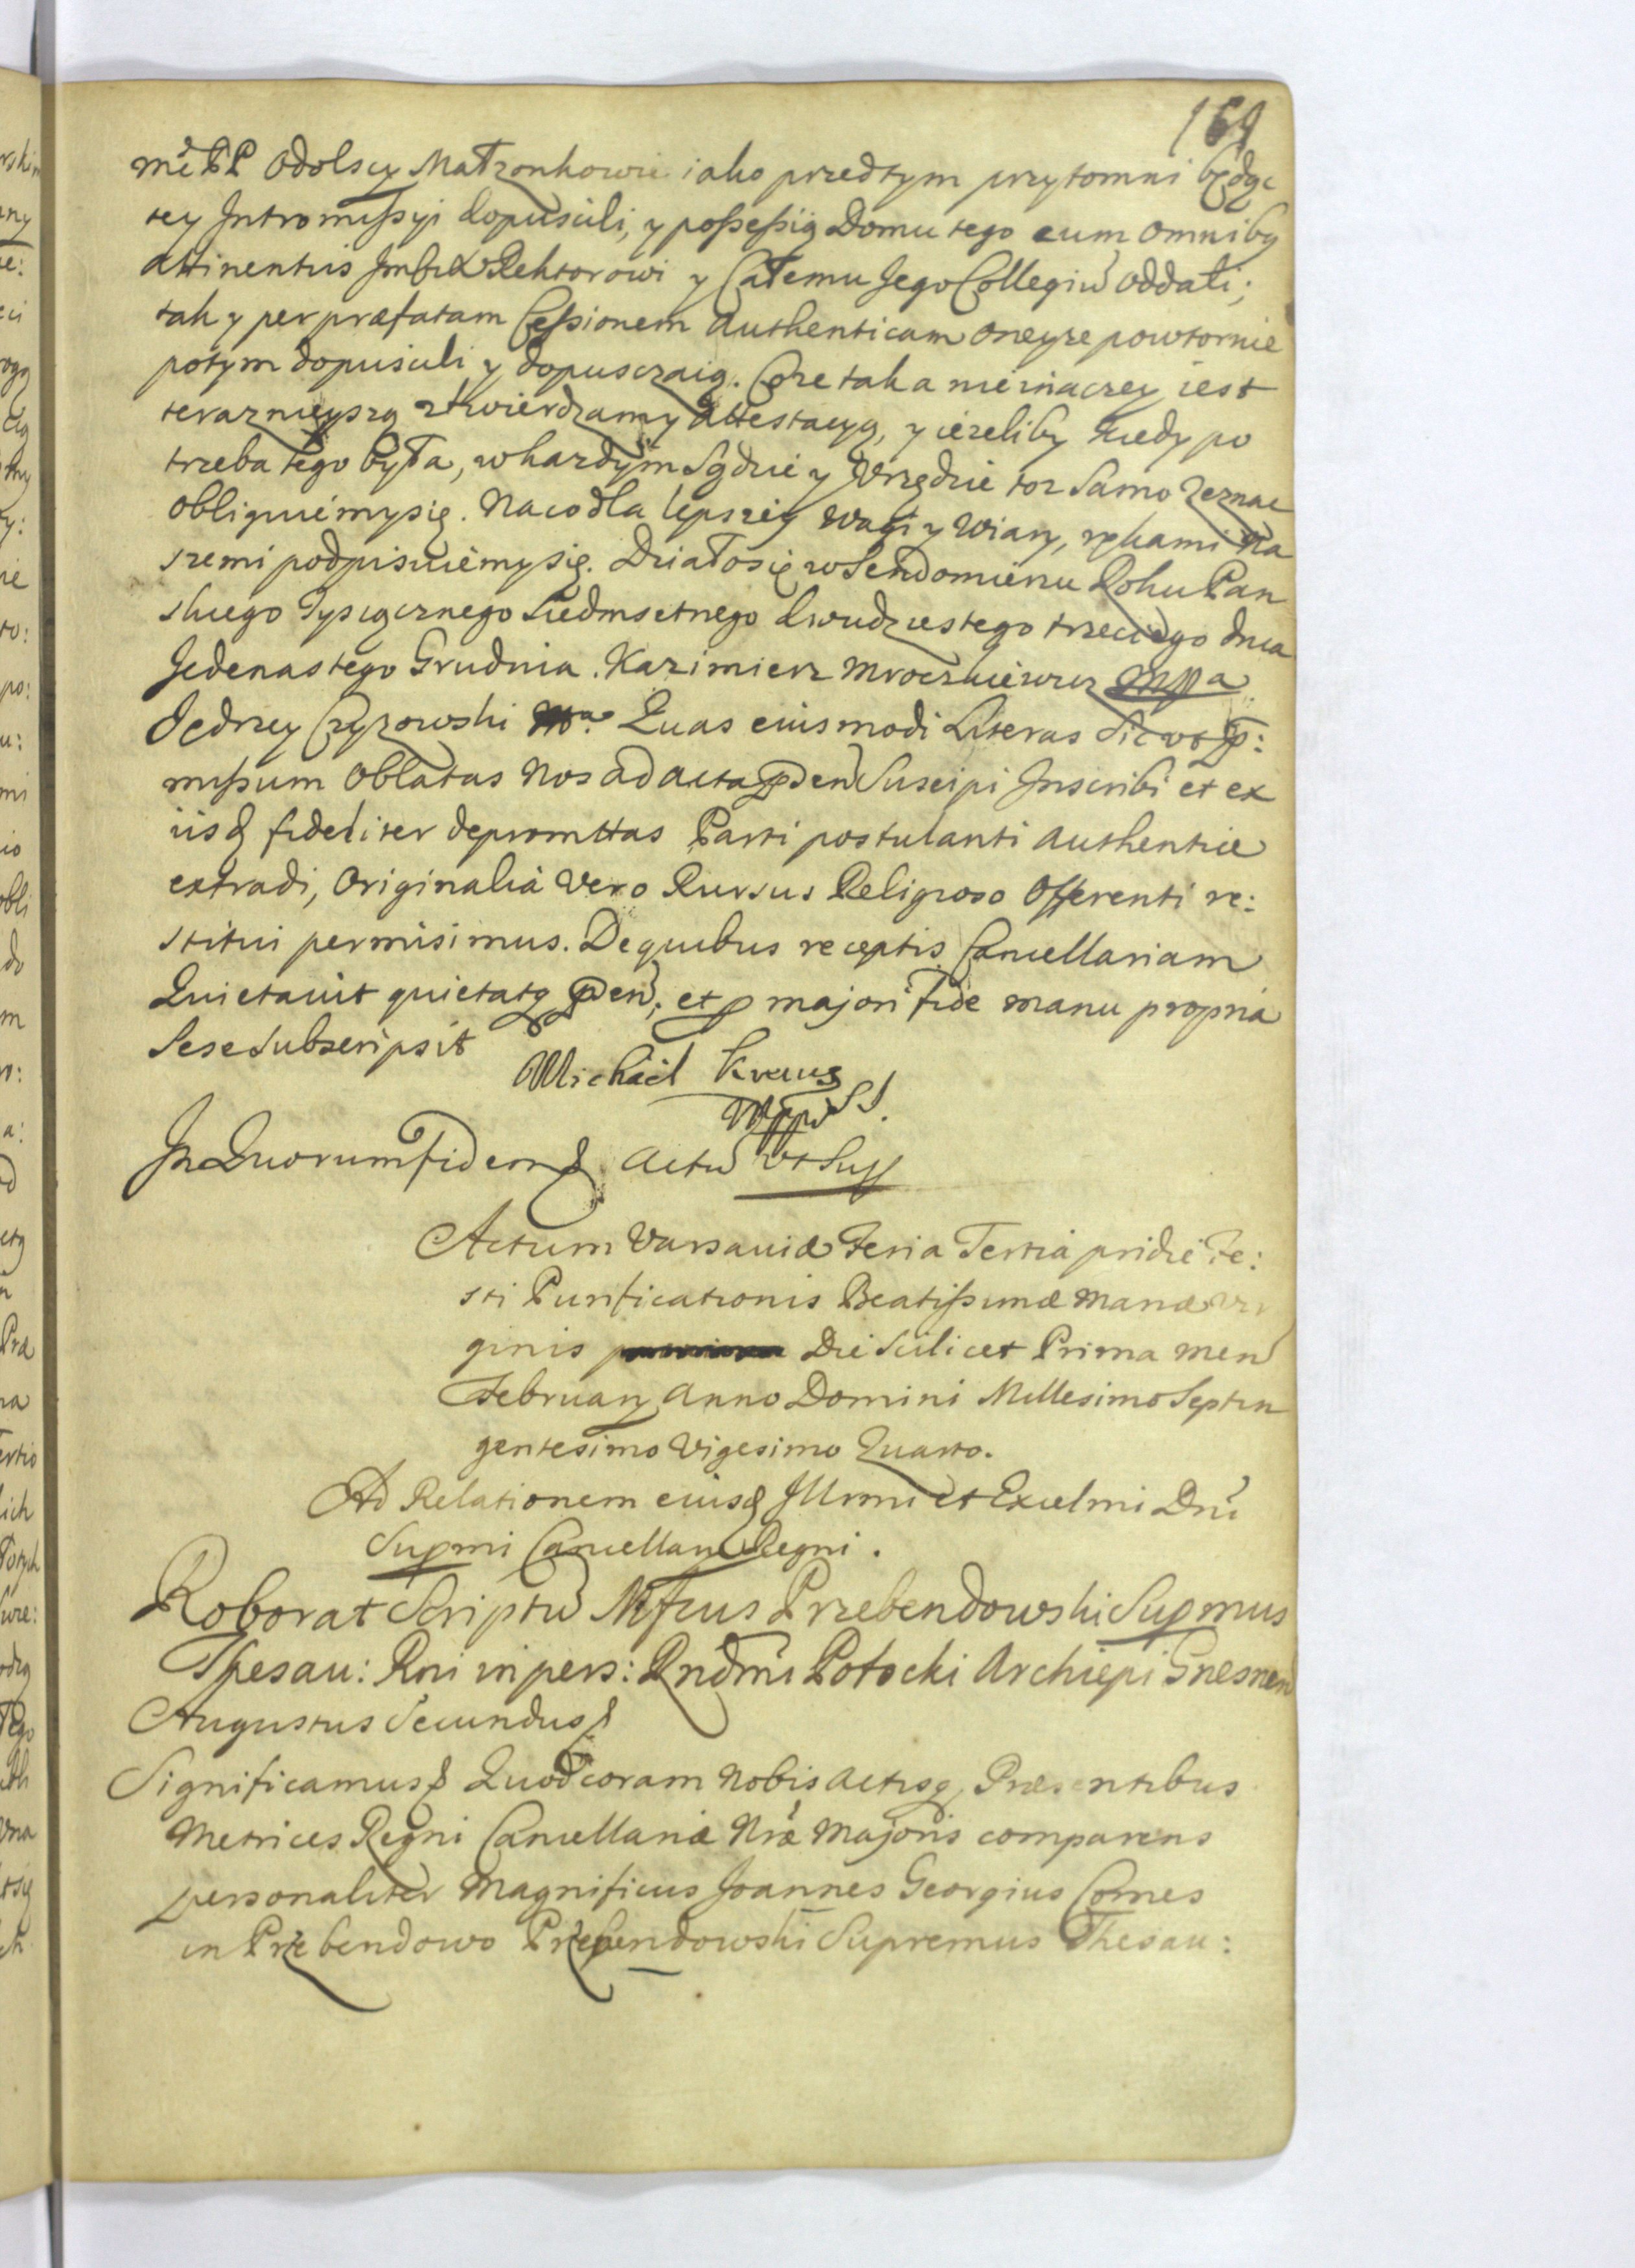 169
mci PP Odolscy Małzonkowie iako przedtym przytomni będąc
tey Intromissyi dopuscili, y possessią Domu tego cum omnibq
attinentiis Rektorowi y Całemu Jego Collegiu oddali;
tak y per præfatam Cessionem Authenticam oneyze powtornie
potym dopuscili y dopusczaią. Co ze tak a nie inaczey iest
teraznieyszą ztwierdzamy Attestacyą, y iezeliby kiedy po
trzeba tego była, w kazdym Sądzie y Vrzędzie toz samo zeznac
obliguiemysię. Na co dla lepszey wagi y wiary, rękami na
szemi podpisuiemysię. Działosię w Sendomierzu Roku Pan
skiego Tysącznego Siedmsetnego dwudziestego trzeciego dnia
Jedenastego Grudnia. Kazimierz Mroczkiewicz mppa
Jędrzey Czyzowski mpa. Quas eiusmodi Literas sic vt p:
missum oblatas Nos ad acta pden Suscipi Inscribi et ex
iisq fideliter depromttas Parti postulanti authentice
extradi, Originalia vero Rursus Religioso Offerenti re:
stitui permisimus. De quibus receptis Cancellariam
Quietauit quietatq pden, et p majori fide manu propria
Sese Subscripsit
Michael Kraus
Mppu SJ.
In Quorum fidem & Actu vt Supp
Actum Varsauiæ Feria Tertia pridie Fe:
sti Purificationis Beatissimæ Mariæ Vir
ginis Die Scilicet Prima men
Februarij Anno Domini Millesimo Septin
gentesimo Vigesimo Quarto.
Ad Relationem eiusd Illrmi et Excelmi Dni
Supmi Cancellarii Regni.
Roborat Scriptu Mfcus Przebendowski Supmus
Thesau: Rni in pers: Rndmi Potocki Archiepi Gnesnen
Augustus Secundus &
Significamus & Quod coram Nobis Actisq Præsentibus
Metrices Regni Cancellariæ Nræ Majoris comparens
personaliter Magnificus Joannes Georgius Comes
in Przebendowo Przebendowski Supremus Thesau: